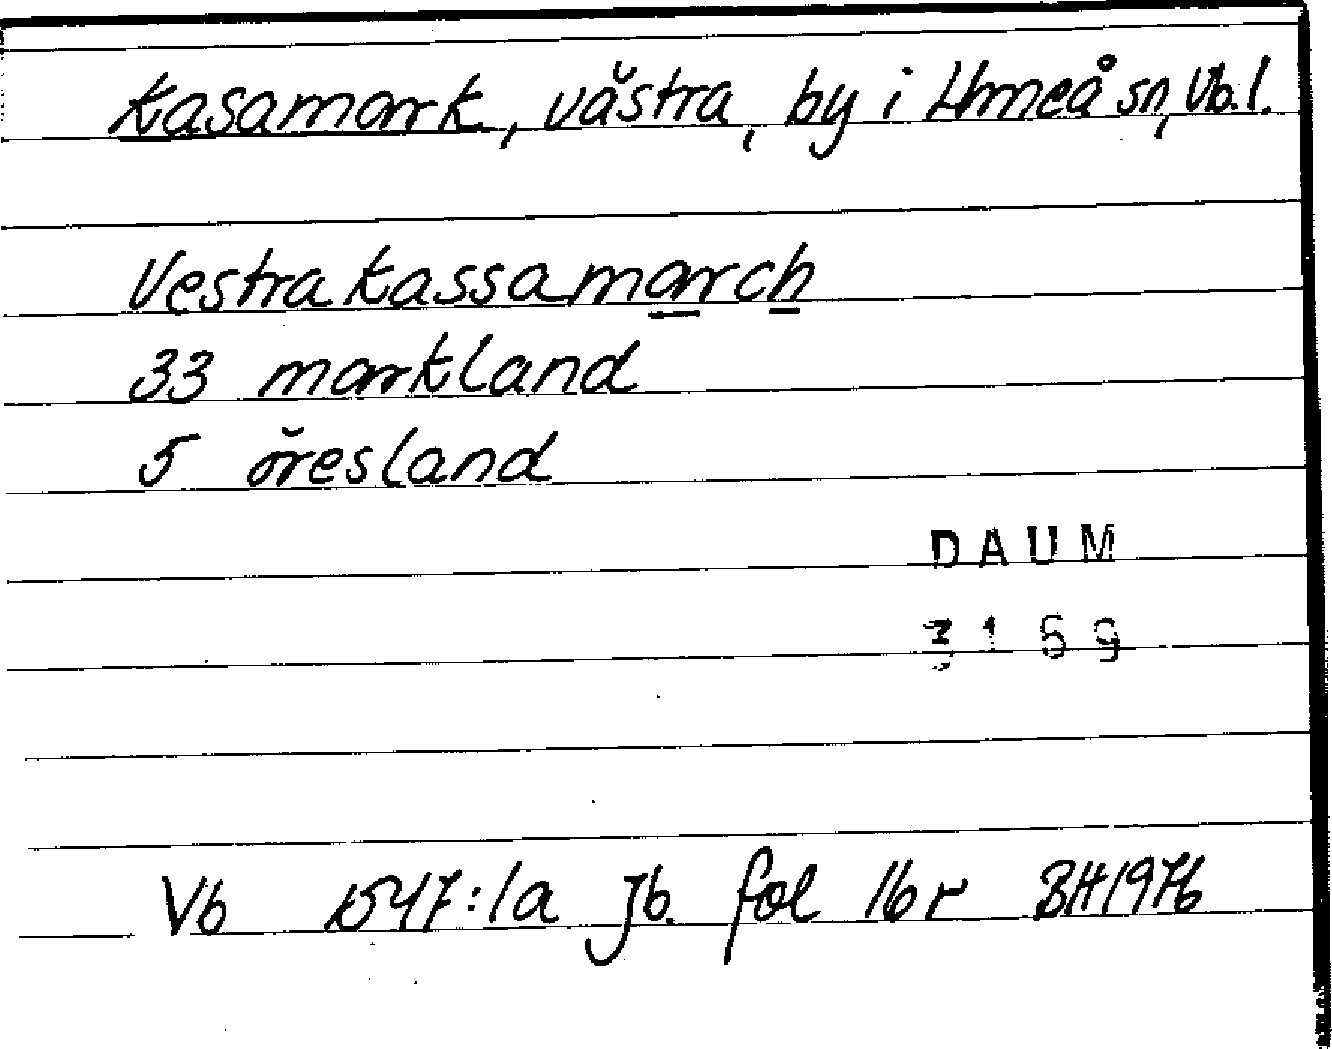 Kasamark, västra, by i Umeå sn, Vb.l.
Vestra kassamarch
33 markland
5 öresland
DAUM
3159
Vb 1547:1a Jb. fol 16r BH1976